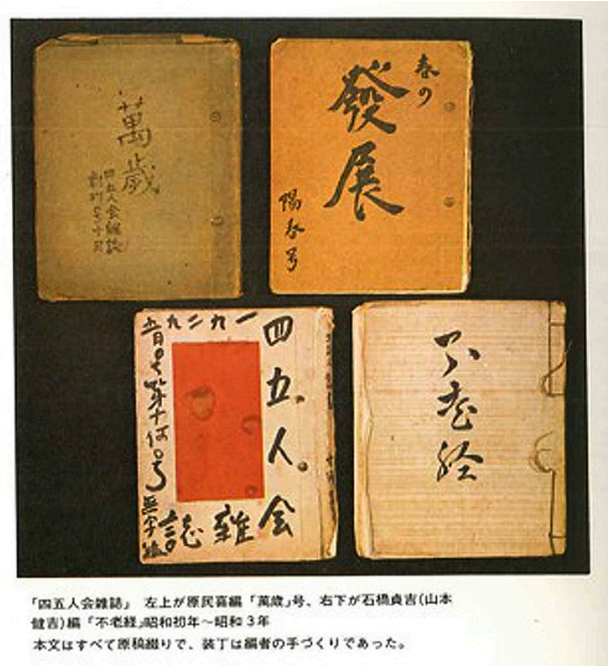 萬歳
四五人会雑誌
春の
發展
陽春号
一九二九
四五人会
雑誌
不老経
「四五人会雑誌」 左上が原民喜編「萬歳」号、右下が石橋貞吉(山本
健吉)編『不老経』昭和初年〜昭和3年
本文はすべて原稿綴りで、装丁は編者の手づくりであった。